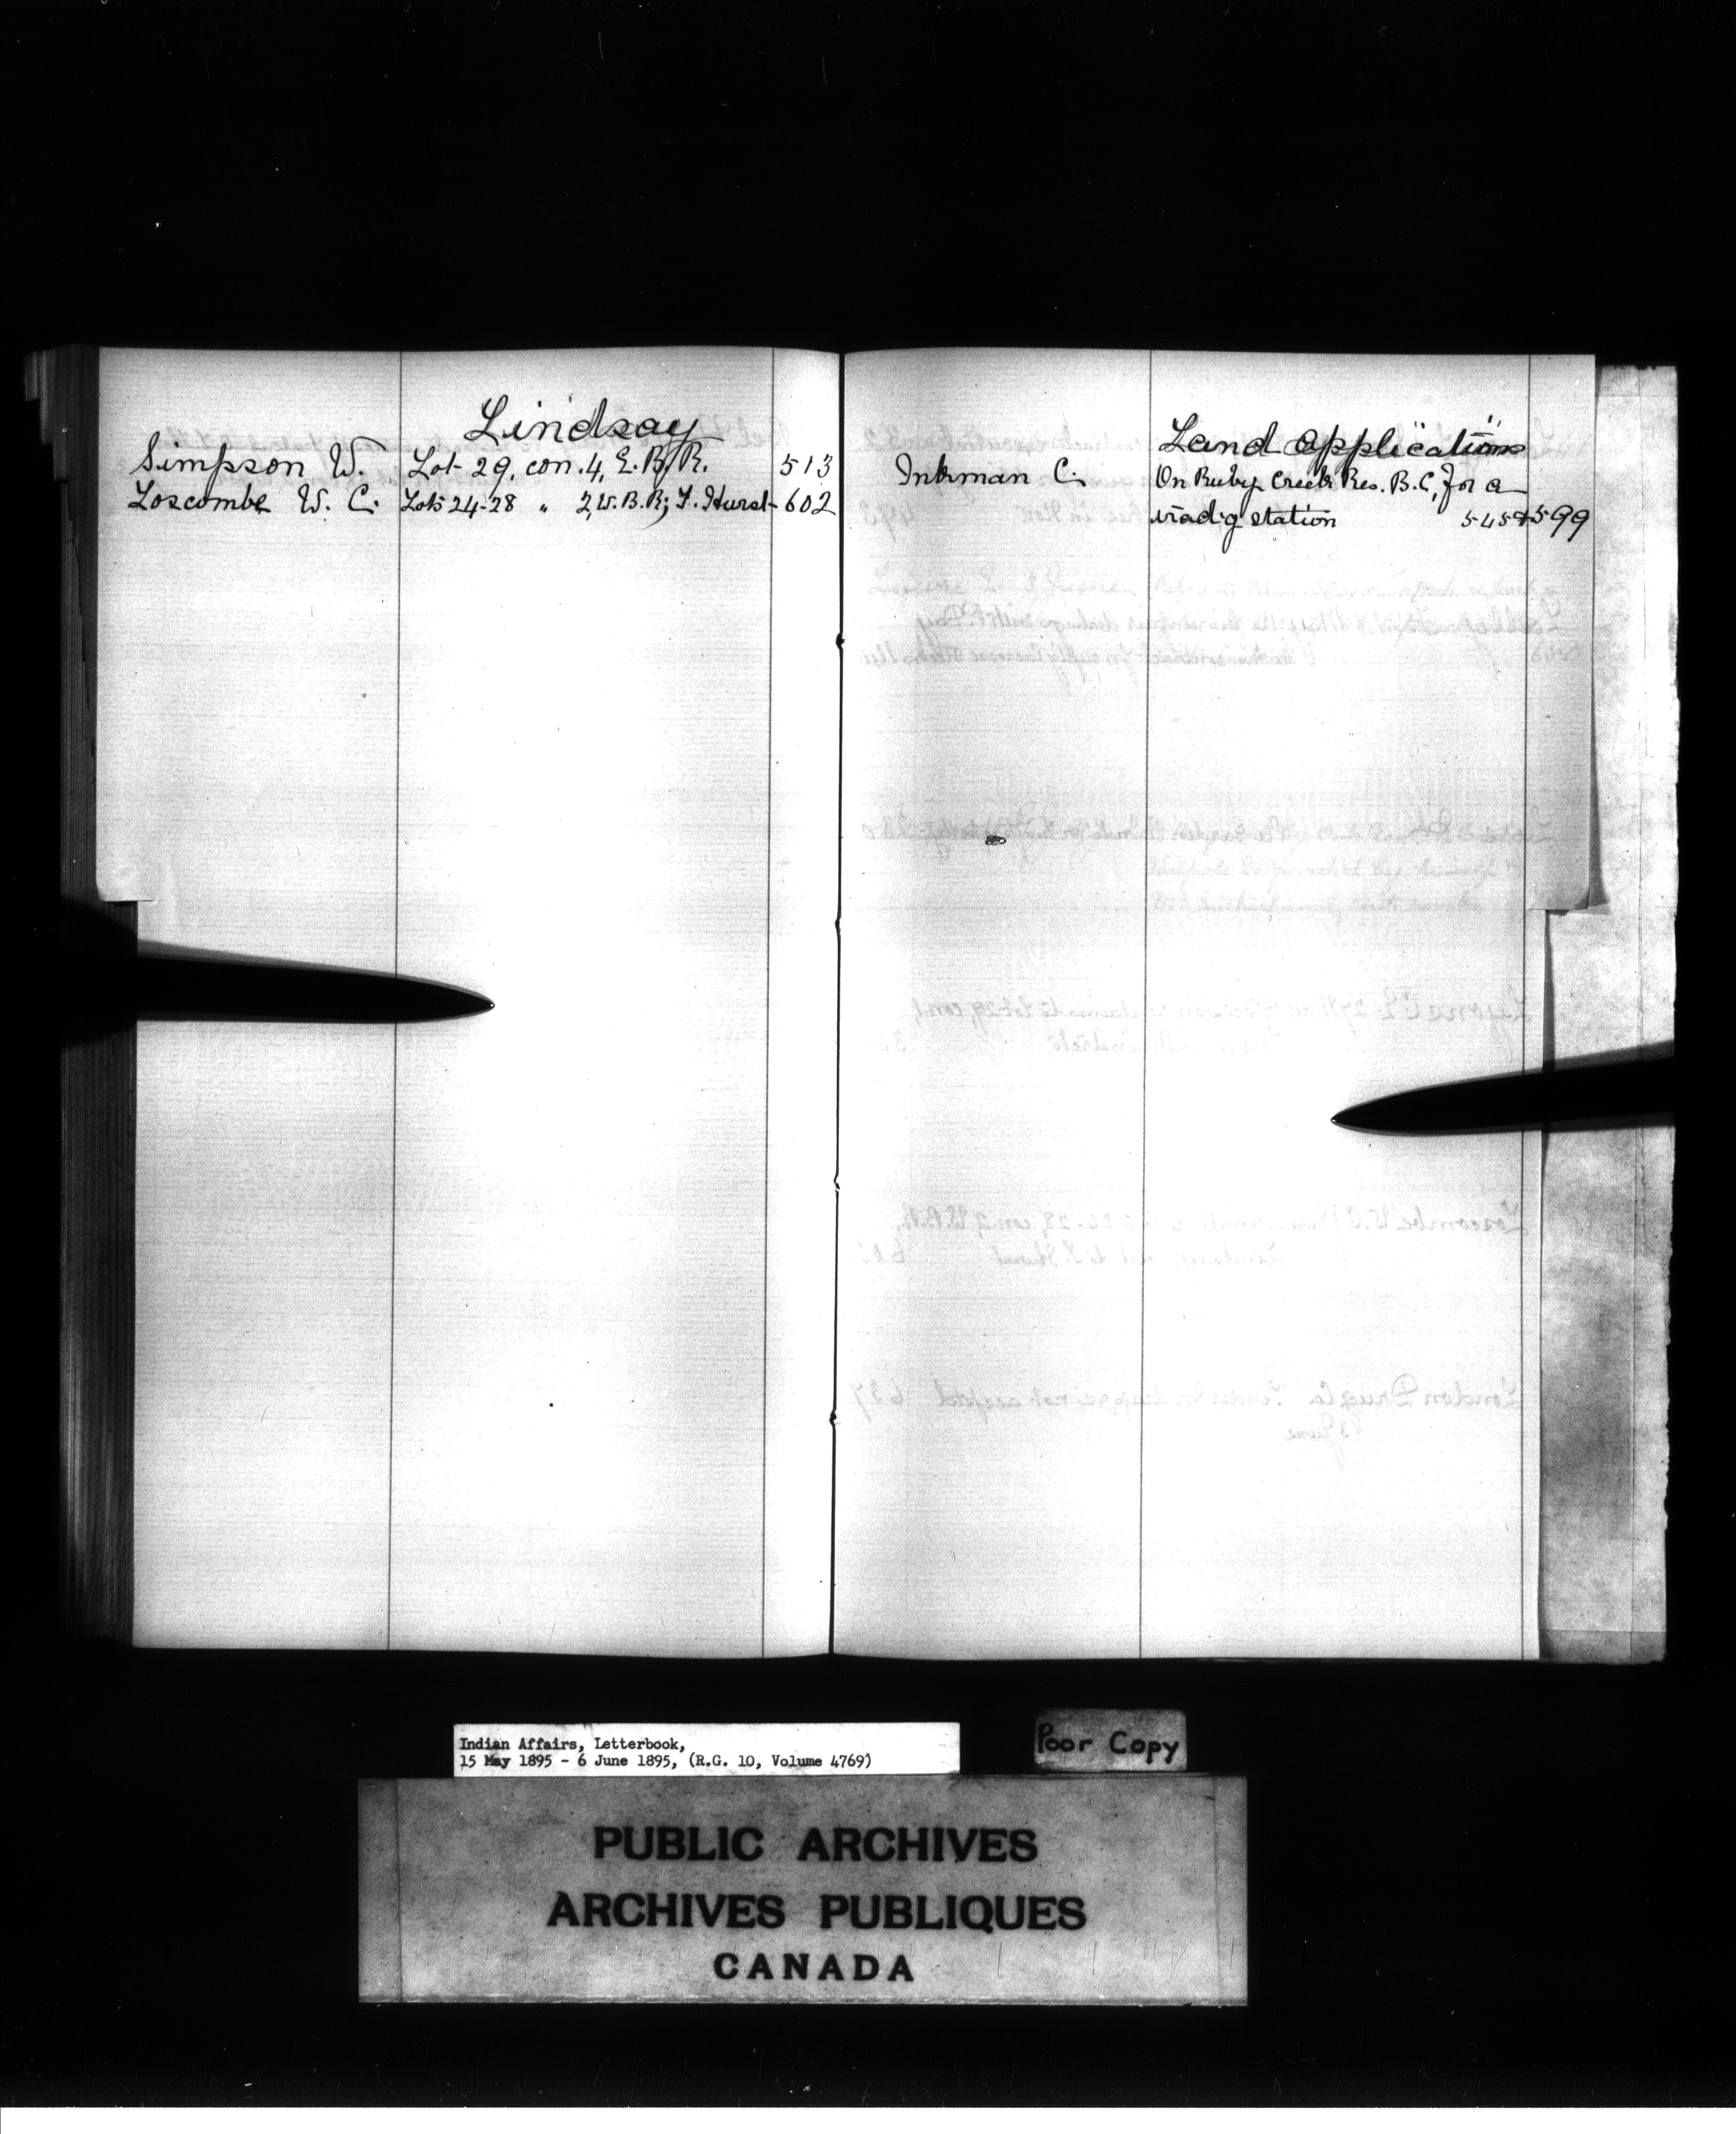 Lindsay
Simpson W. Lot 29, con. 4, E. B. R. 513
Loscombe W. C. Lots 24-28 " 2, W. B. R; T. Hurst 602
Land Applications
Inkman C. On Ruby Creek Res. B.C, for a
tradig station 545 599
Indian Affairs, Letterbook,
15 May 1895 - 6 June 1895, (R.G. 10, Volume 4769)
Poor Copy
PUBLIC ARCHIVES
ARCHIVES PUBLIQUES
CANADA